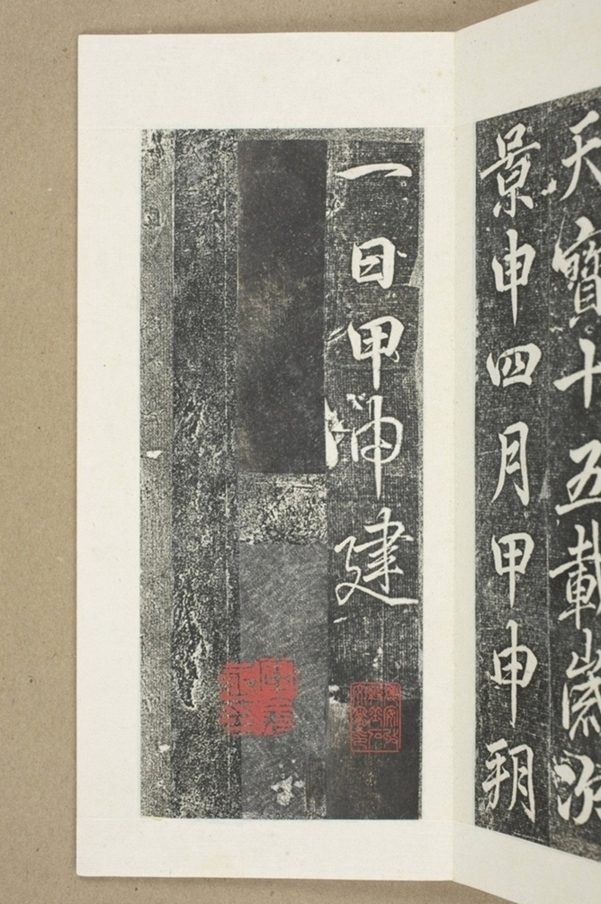 天寶十五載歲次
景申四月甲申朔
一日甲申建